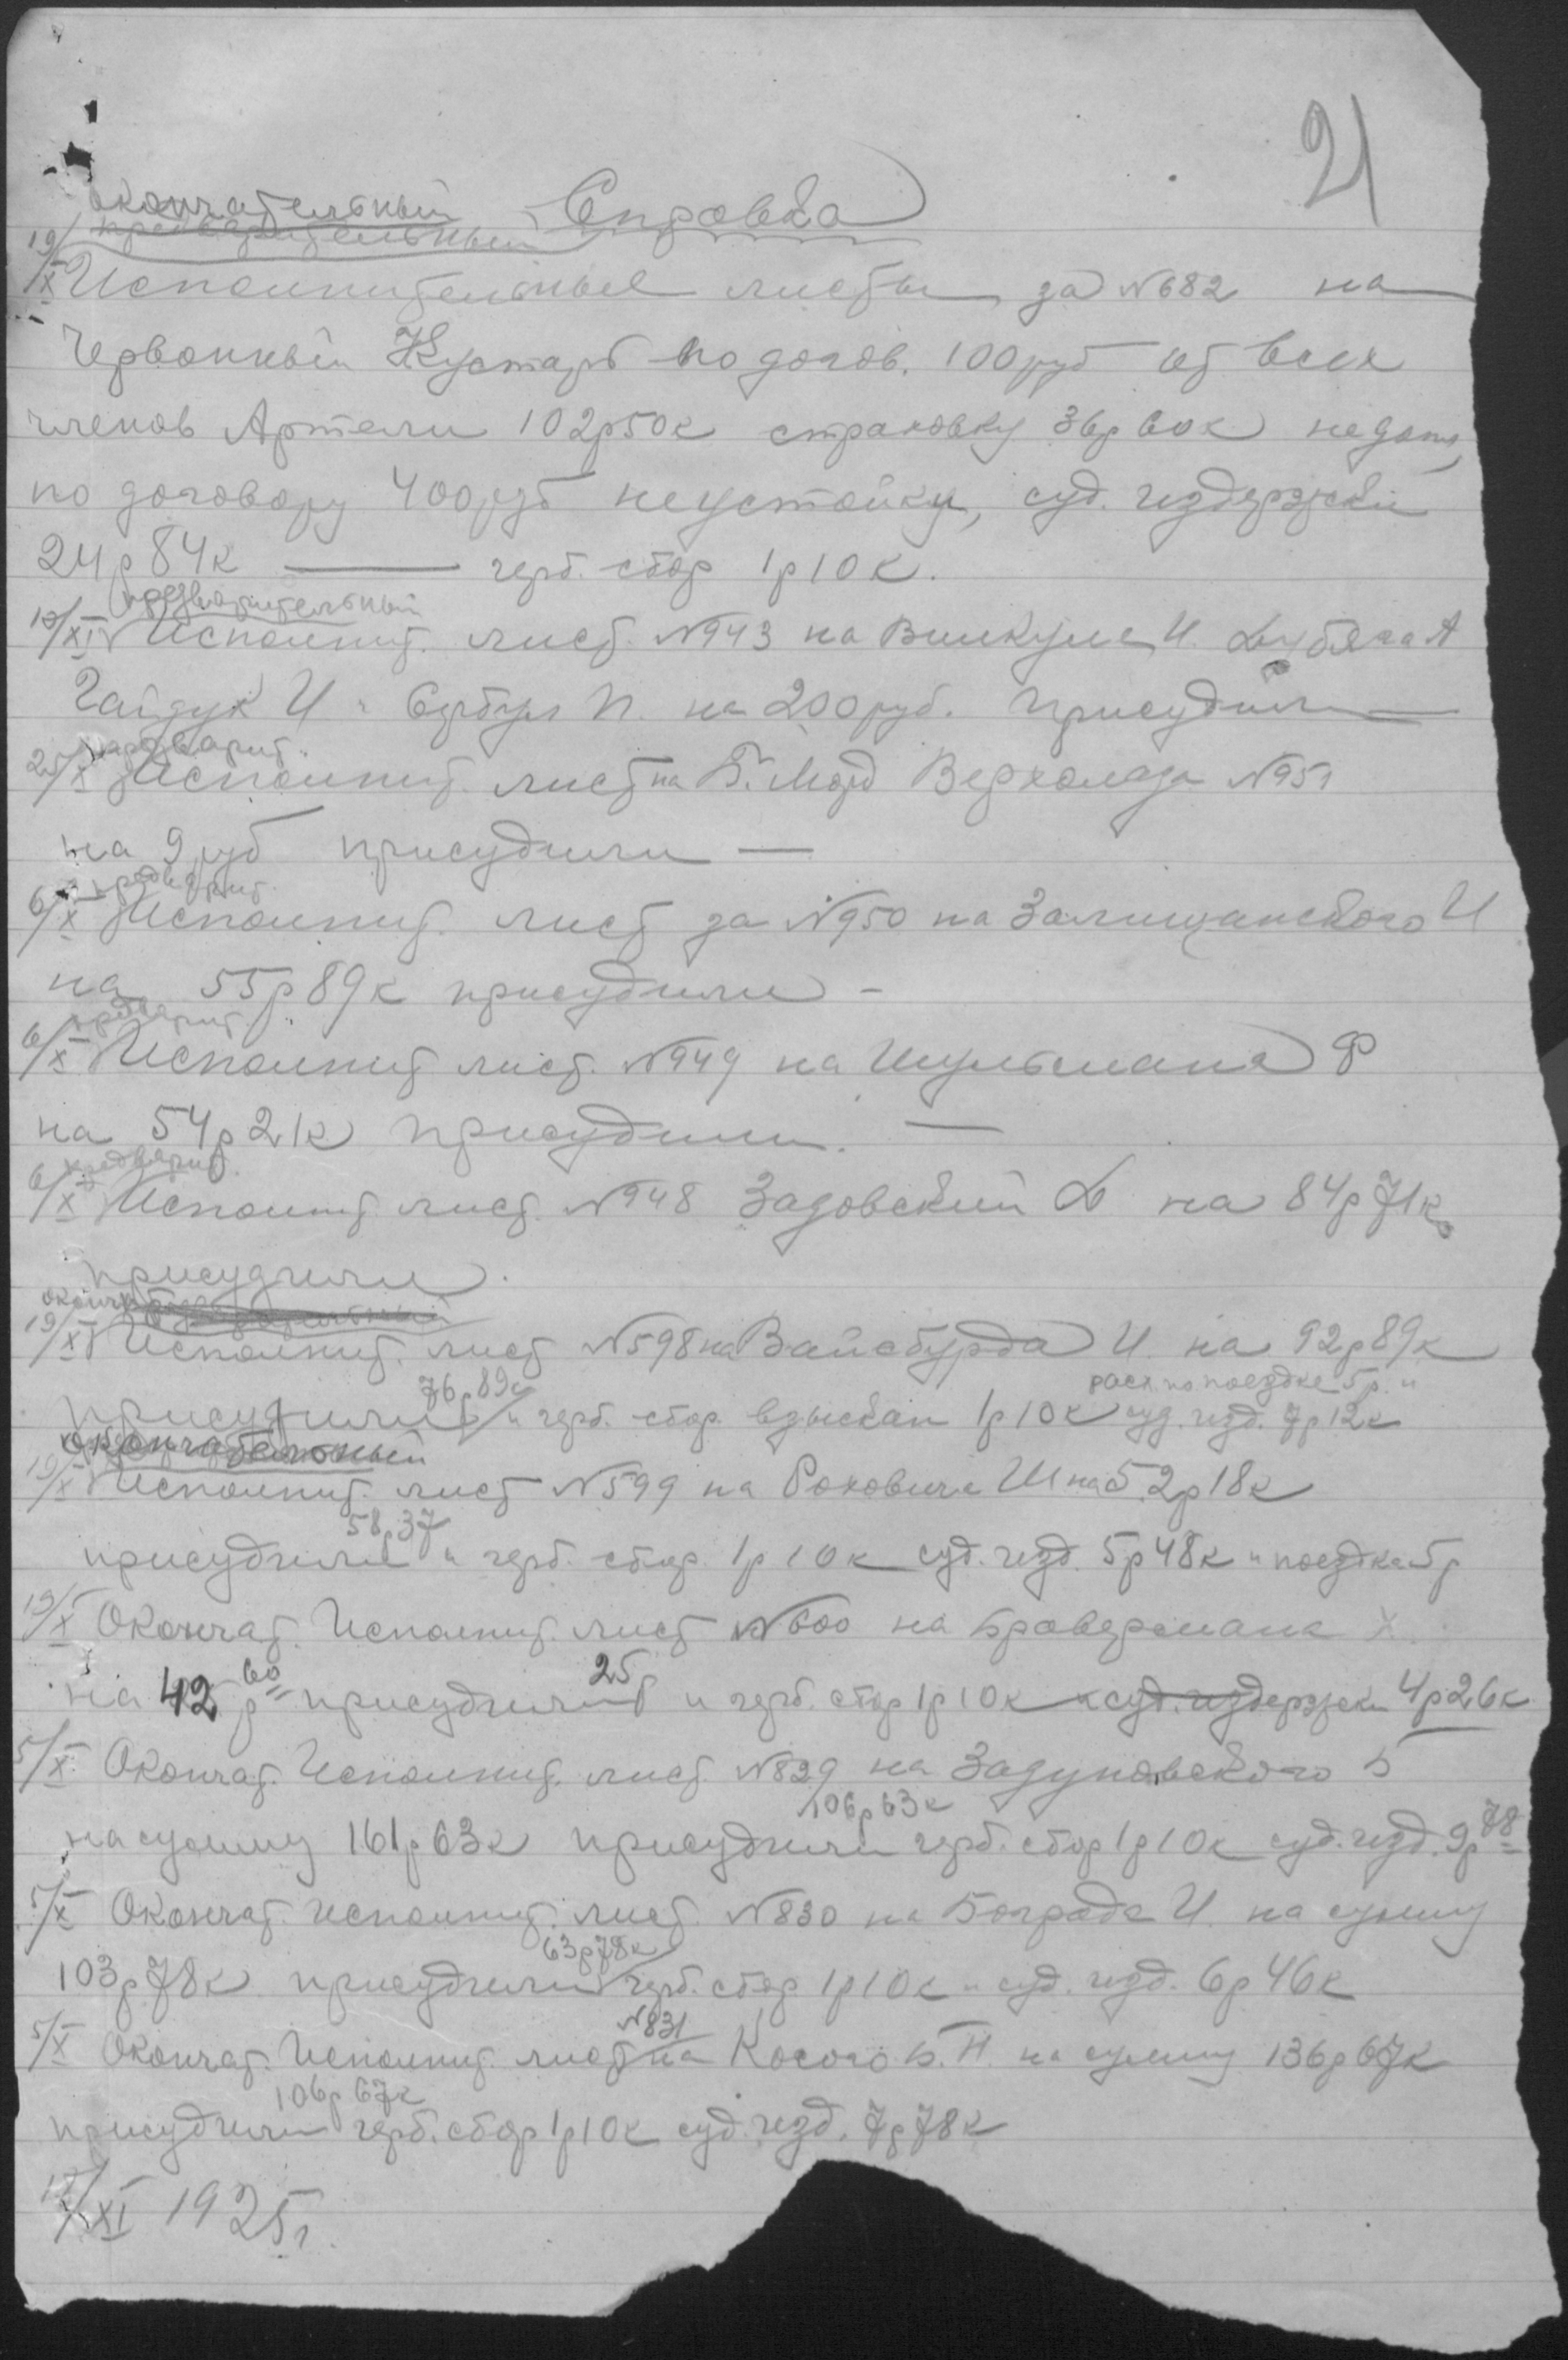 21
Справка
окончательный
предварительный
19/X Исполнительные листы за №682 на
Червонный Кустарь по догов. 100 руб от всех
членов Артели 102р50к страховку 36р60к недопл
по договору 400 руб неустойку, суд. издержки
24р84к — герб. сбор 1р10к.
предварительный
19/XI Исполнит. лист. №943 на Винкуле И. А
Гайдук И. П. на 200 руб. присудили —
предварит.
25/X Исполнит лист на Верхолаза №951
на 9 руб присудили —
предварит.
6/X Исполнит. лист за №950 на Залищанского И
на 55р89к присудили -
предварит.
6/X Исполнит лист. №949 на Шульмана Ф
на 54р21к присудили. —
предварит.
6/X Исполнит лист. №948 Задовский на 84р71к
присудили.
19/XI Исполнит. лист №598 на Вайсбурда И. на 92р89к
76р89к расх по поездке 5р. и
присудили и герб. сбор. взыскан 1р10к суд. изд. 7р12к
окончательный
19/X Исполнит. лист №599 на Роховича Ш на 52р18к
58р37
присудили и герб. сбор. 1р10к суд. изд. 5р48к и поездка 5р
19/X Окончат. Исполнит. лист №600 на Бравермана Х.
на 42р60 присудили 25р и герб. сбор 1р10к и суд. издержки 4р26к
5/X Окончат. Исполнит. лист. №829 на Задуновского Б
106р63к
на сумму 161р63к присудили герб. сбор 1р10к суд. изд. 9р78
5/X Окончат. Исполнит. лист. №830 на Бограда И. на сумму
63р78к
103р78к присудили герб. сбор 1р10к и суд. изд. 6р46к
№831
5/X Окончат. Исполнит. лист на Косого Б.Н. на сумму 136р67к
106р67к
присудили герб. сбор 1р10к суд. изд. 7р78к
XI 1925г.